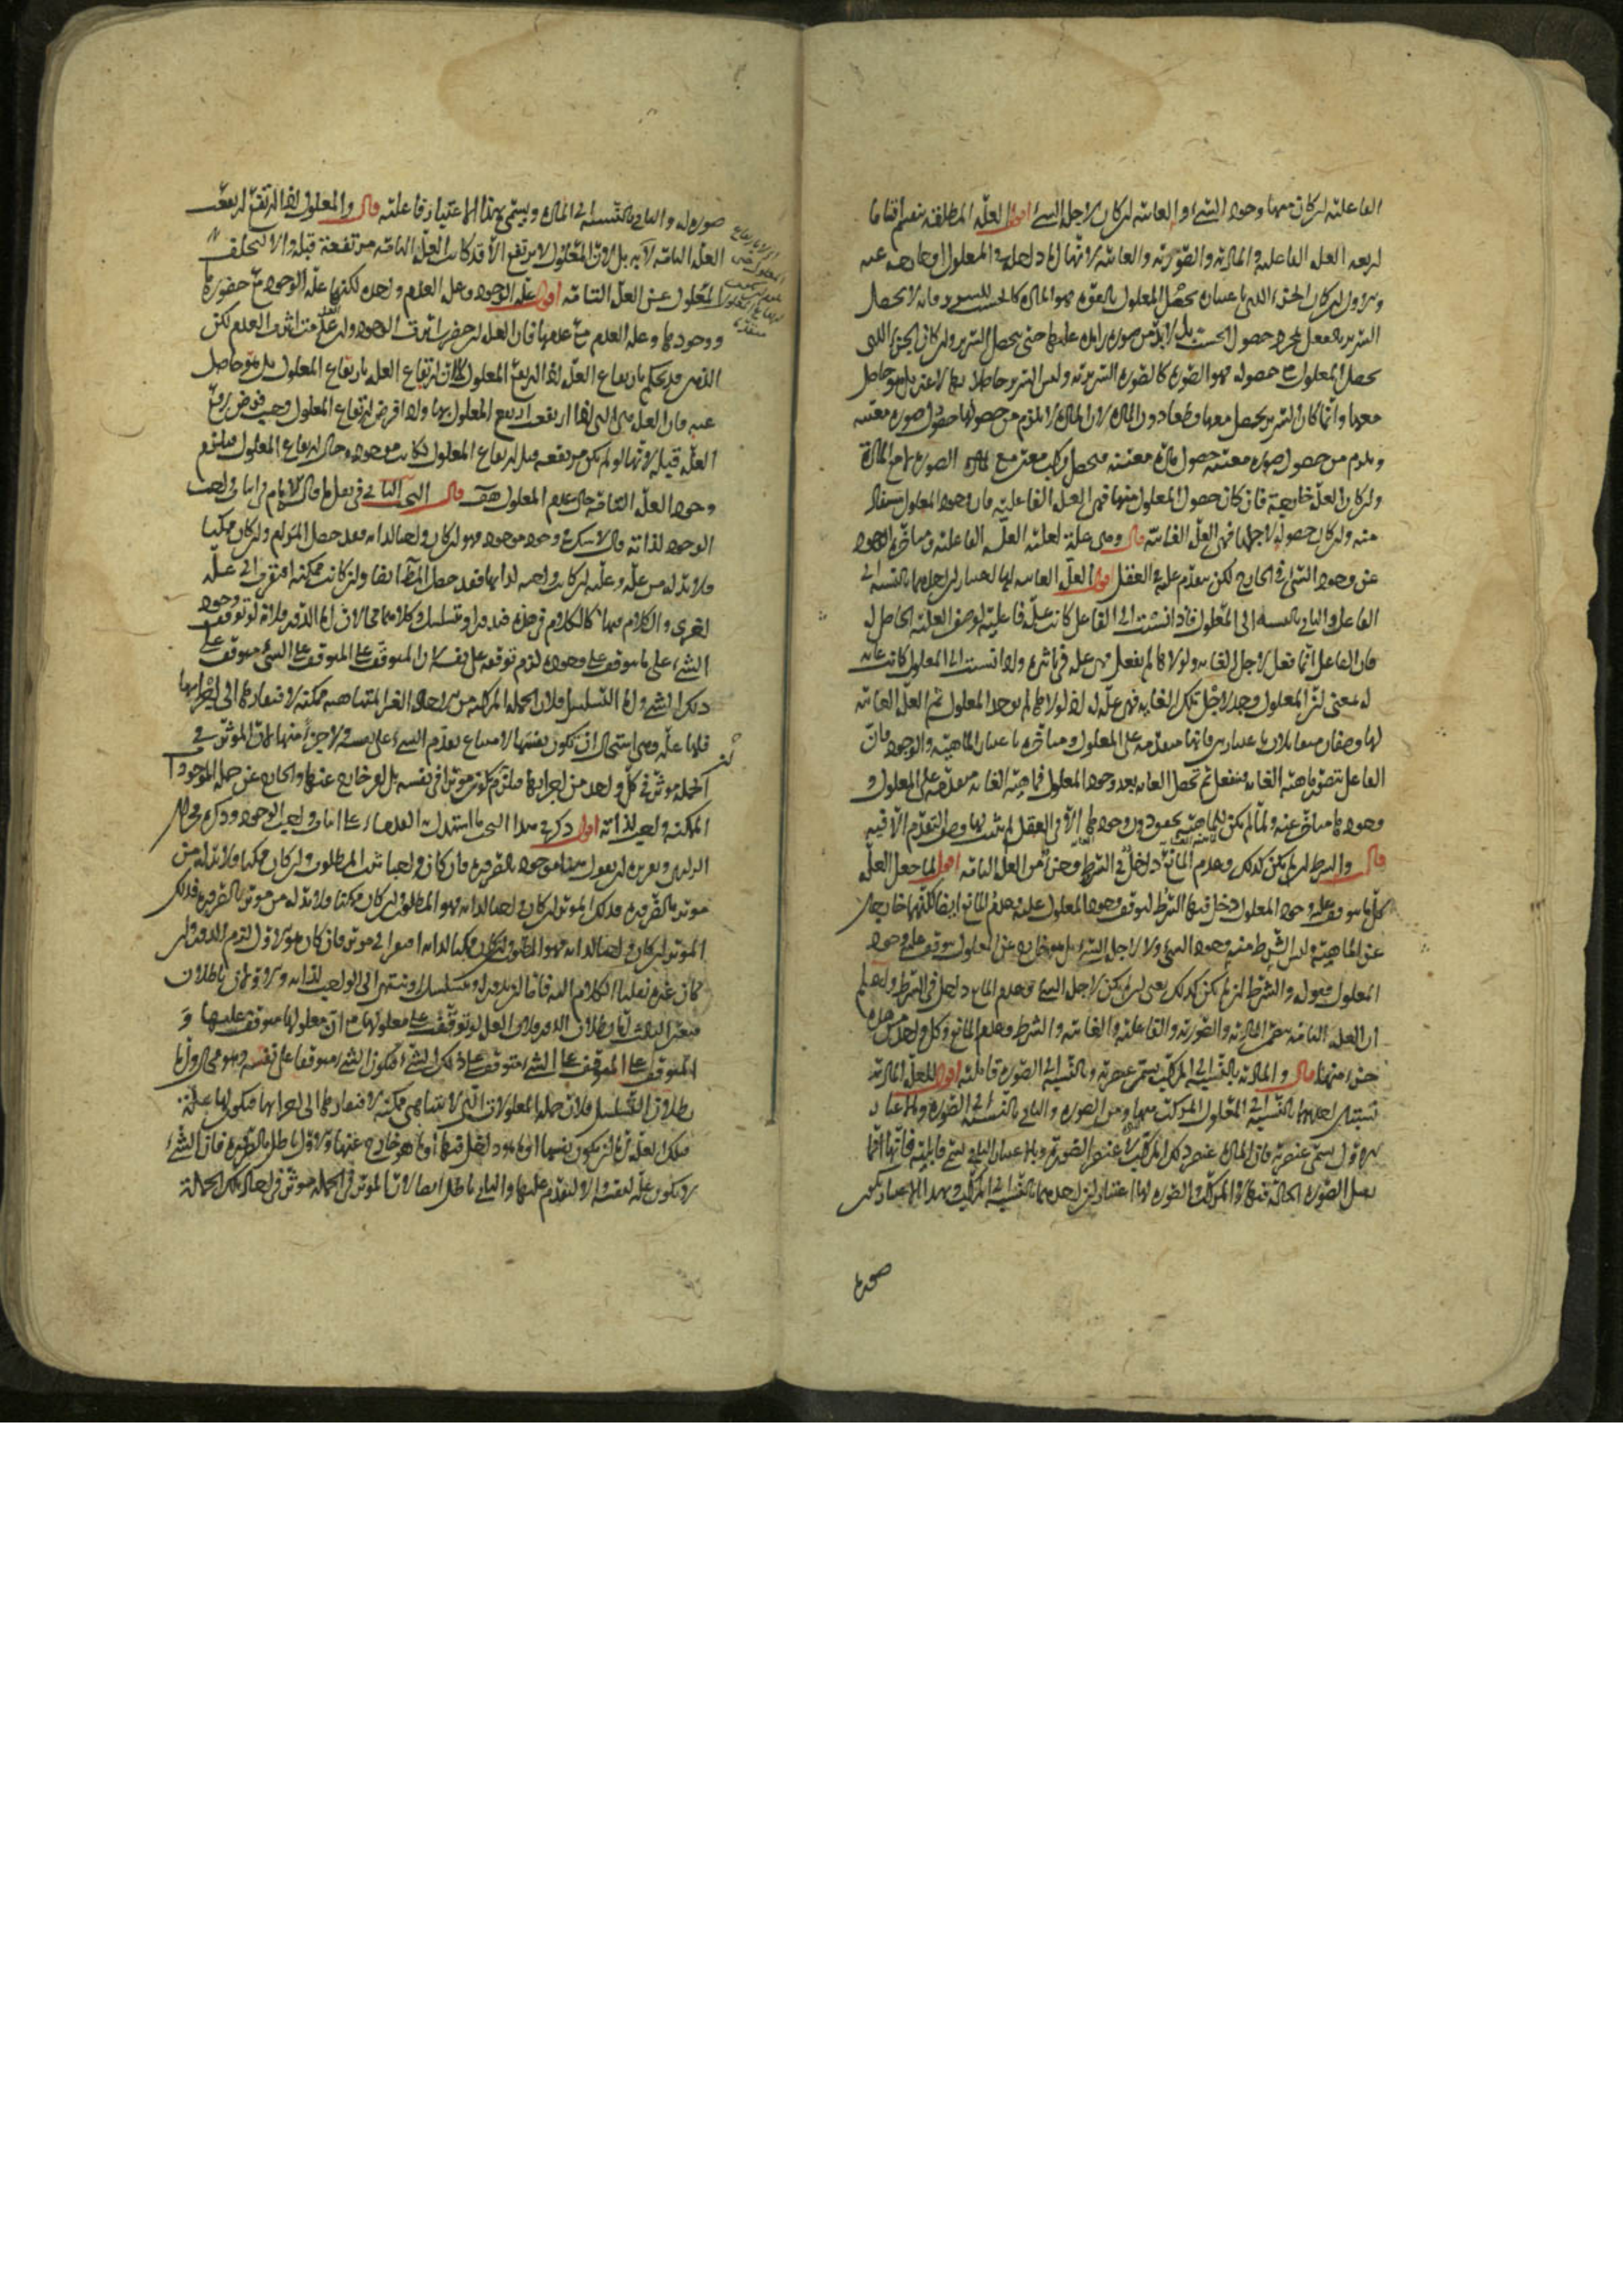 الفاعلية ان كان منها وجود الشيء او الغائية ان كان لاجل الشيء اقول العلة المطلقة تنقسم اقساما
اربعة العلة الفاعلية والمادية والصورية والغائية لانها اما داخلة في المعلول او خارجة عنه
والاول ان كان الجزء الذي باعتباره يحصل المعلول بالقوة فهو المادة كالخشب للسرير فانه لا يحصل
السرير بالفعل بمجرد حصول الخشب بل لا بد من صورة زايدة عليها حتى يحصل السرير وان كان الجزء الذي
يحصل المعلول مع حصوله فهو الصورة كالصورة السريرية وليس السرير حاصلا بها لا غير بل هو حاصل
معها وانما كان السرير يحصل معها قطعا دون المادة لان المادة لا يلزم من حصولها حصول صورة معينة
ويلزم من حصول صورة معينة حصول مادة معينة فيحصل مركب معين مع الصورة المادة
وان كان العلة خارجية فان كان حصول المعلول منها فهي العلة الفاعلية فان وجود المعلول مستفاد
منه وان كان حصوله لاجلها فهي العلة الغائية قال وهي علة لعلية العلة الفاعلية ومتأخرة الوجود
عن وجود الشيء في الخارج لكن متقدم عليه في العقل اقول العلة الغائية لها اعتباران احدهما بالنسبة الى
الفاعل والثاني بالنسبة الى المعلول فاذا نسبت الى الفاعل كانت علة فاعلية لوصف العلية الحاصل له
فان الفاعل انما فعل لاجل الغاية ولولاها لم يفعل فهي علة في تأثيره واذا نسبت الى المعلول كانت غاية
له بمعنى ان المعلول وجد لاجل تلك الغاية فهي علة له اذ لولاها لم يوجد المعلول ثم العلة الغائية
لها وصفان متقابلان باعتبارين فانها متقدمة على المعلول ومتأخرة باعتبار الماهية والوجود فان
الفاعل يتصور ماهية الغاية فيفعل ثم تحصل الغاية بعد وجود المعلول فماهية الغاية متقدمة على المعلول و
وجودها متأخر عنه ولما لم يكن للماهية تحقق دون وجودها الا في العقل لم يثبت لها وصف التقدم الا فيه
قال والشرط ان لم يكن كذلك وعدم المانع داخل في الشرط وجزء من العلة التامة اقول لما جعل العلة
كل ما يتوقف عليه وجود المعلول دخل فيها الشرط لتوقف وجود المعلول عليه وعدم المانع ايضا لكنها خارجان
عن الماهية وليس الشرط منه وجود الشيء ولا لاجل الشيء بل هو خارج عن المعلول يتوقف عليه وجود
المعلول فقوله والشرط ان لم يكن كذلك يعنى ان لم يكن لاجل الشيء وعدم المانع داخل في الشرط واعلم
ان العلة التامة هي المادية والصورية والفاعلية والغائية والشرط وعدم المانع وكل واحد من هذه
جزء منها قال والمادية بالنسبة الى المركب تسمى عنصرية وبالنسبة الى الصورة قابلية اقول للعلة المادية
نسبتان احديهما بالنسبة الى المعلول المركب منها ومن الصورة والثاني بالنسبة الى الصورة وبالاعتبار
الاول يسمى عنصرية فان المادة عنصر ذلك المركب لا عنصر الصورة وبالاعتبار الثاني تسمى قابلية فانها انما
تقبل الصورة الحالة فيها لا المركب والصورة لها اعتباران احدهما بالنسبة الى المركب وبهذا الاعتبار تكون
صورة
صورة له والثاني بالنسبة الى المادة ويسمى بهذا الاعتبار فاعلية قال والمعلول اذا ارتفع ارتفعت
العلة التامة لا به بل لان المعلول لا يرتفع الا وقد كانت العلة التامة مرتفعة قبله والا لتخلف
المعلول عن العلة التامة اقول علة الوجود وعلة العدم واحدة لكنها علة الوجود مع حضورها
ووجودها وعلة العدم مع عدمها فان العلة ان حضرت اثرت الوجود وان عدمت اثرت العدم لكن
الذهن قد يحكم بارتفاع العلة اذا ارتفع المعلول لا لان ارتفاع العلة بارتفاع المعلول بل هو حاصل
عنه فان العلة هي التي اذا ارتفعت ارتفع المعلول بها واذا فرض ارتفاع المعلول وجب فرض رفع
العلة قبله لانها لو لم تكن مرتفعة قبل ارتفاع المعلول لكانت موجودة حال ارتفاع المعلول فيلزم
وجود العلة التامة حال عدم المعلول هف قال البحث الثاني في نقل ما قال الامام في اثبات واجب
الوجود لذاته قال لا شك في وجود موجود فهو ان كان واجبا لذاته فقد حصل المرام وان كان ممكنا
فلا بد له من علة وعلته ان كانت واجبة لذاتها فقد حصل المط ايضا وان كانت ممكنة افتقرت الى علة
اخرى والكلام فيها كالكلام في هذه فيدور او يتسلسل وكلاهما محالان اما الدور فلانه لو توقف وجود
الشيء على ما يتوقف على وجوده لزم توقفه على نفسه لان المتوقف على المتوقف على الشيء متوقف على
ذلك الشيء واما التسلسل فلان الجملة المركبة من الاحاد الغير المتناهية ممكنة لافتقارها الى اجزائها
فلها علة وهي استحال ان تكون نفسها لامتناع تقدم الشيء على نفسه ولا جزءا منها لان الموثر في
الجملة موثر في كل واحد من اجزائها فيلزم كونه موثرا في نفسه بل امر خارج عنها والخارج عن جملة الموجودات
الممكنة واجب لذاته اقول ذكر في هذا البحث ما استدل به القدماء على اثبات واجب الوجود وذكره
الدليل وتقريره ان يقول هنا موجود بالضرورة فان كان واجبا ثبت المطلوب وان كان ممكنا فلا بد له من
موثر بالضرورة فذلك الموثر ان كان واجبا لذاته فهو المطلوب وان كان ممكنا فلا بد له من موثر بالضرورة فذلك
الموثر ان كان واجبا لذاته فهو المطلوب وان كان ممكنا لذاته افتقر الى موثر فان كان هو الاول لزم الدور وان
كان غيره نقلنا الكلام اليه فاما ان يدور او يتسلسل او ينتهي الى الواجب لذاته والاولان باطلان
فتعين الثالث اما بطلان الدور فلان العلة لو توقفت على معلولها مع ان معلولها متوقف عليها و
المتوقف على المتوقف على الشيء متوقف على ذلك الشيء فيكون الشيء متوقفا على نفسه وهو محال واما
بطلان التسلسل فلان جملة المعلولات التي لا تتناهى ممكنة لافتقارها الى اجزائها فيكون لها علة
فتلك العلة اما ان تكون نفسها او ما هو داخل فيها او ما هو خارج عنها والاول باطل بالضرورة فان الشيء
لا يكون علة لنفسه والا لتقدم عليها والثاني باطل ايضا لان الموثر في الجملة موثر في احاد تلك الجملة